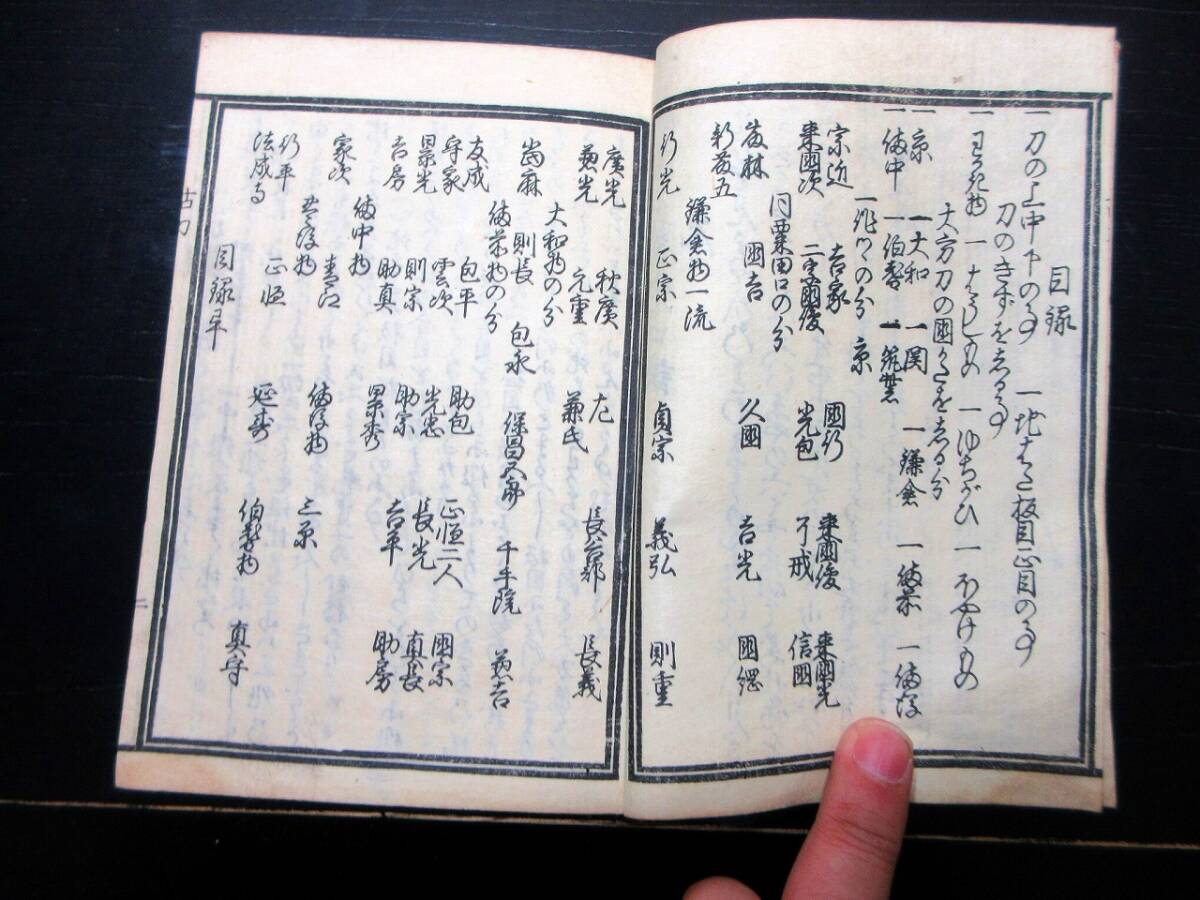 目録
一 刀の上中下の事 一 地はた板目正目の事
刀のきずをしる事
一 はらしもの 一
大方刀の國々をしる分
一 京 一 大和 一 関 一 鎌倉 一 備前 一 備後
一 備中 一 伯耆 一 筑紫
一 作々の分 京
宗近 吉家 國行 来國俊 来國光
来國次 二字國俊 光包 了戒 信國
同粟田口の分
國吉 久國 吉光 國綱
新藤五
鎌倉物一流
行光 正宗 貞宗 義弘 則重
廣光 秋廣 左 長谷部 長義
兼光 元重 兼氏
大和物の分
當麻 則長 包永 保昌五郎 千手院
備前物の分
友成 包平 助包 正恒二人 國宗
守家 雲次 光忠 長光 真長
景光 則宗 助宗 吉平 助房
吉房 助真 景秀
備中物
家次 青江 備後物 三原
行平 正恒 延寿 伯耆物 真守
法成寺
目録畢
古刀
二